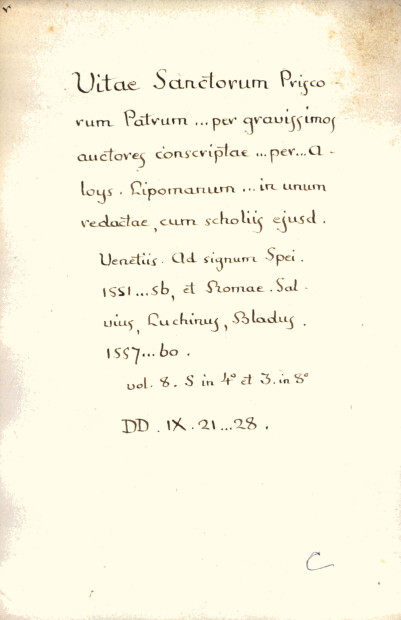 Vitae Sanctorum Prisco-
rum Patrum ... per gravissimos
auctores conscriptae ... per ... A-
loys. Lipomanum ... in unum
redactae, cum scholiis ejusd.
Venetiis. Ad signum Spei.
1551 ... 56, et Romae. Sal-
vius, Luchinus, Bladus.
1557 ... 60.
vol. 8. 5 in 4° et 3. in 8°
DD. IX. 21 ... 28.
C